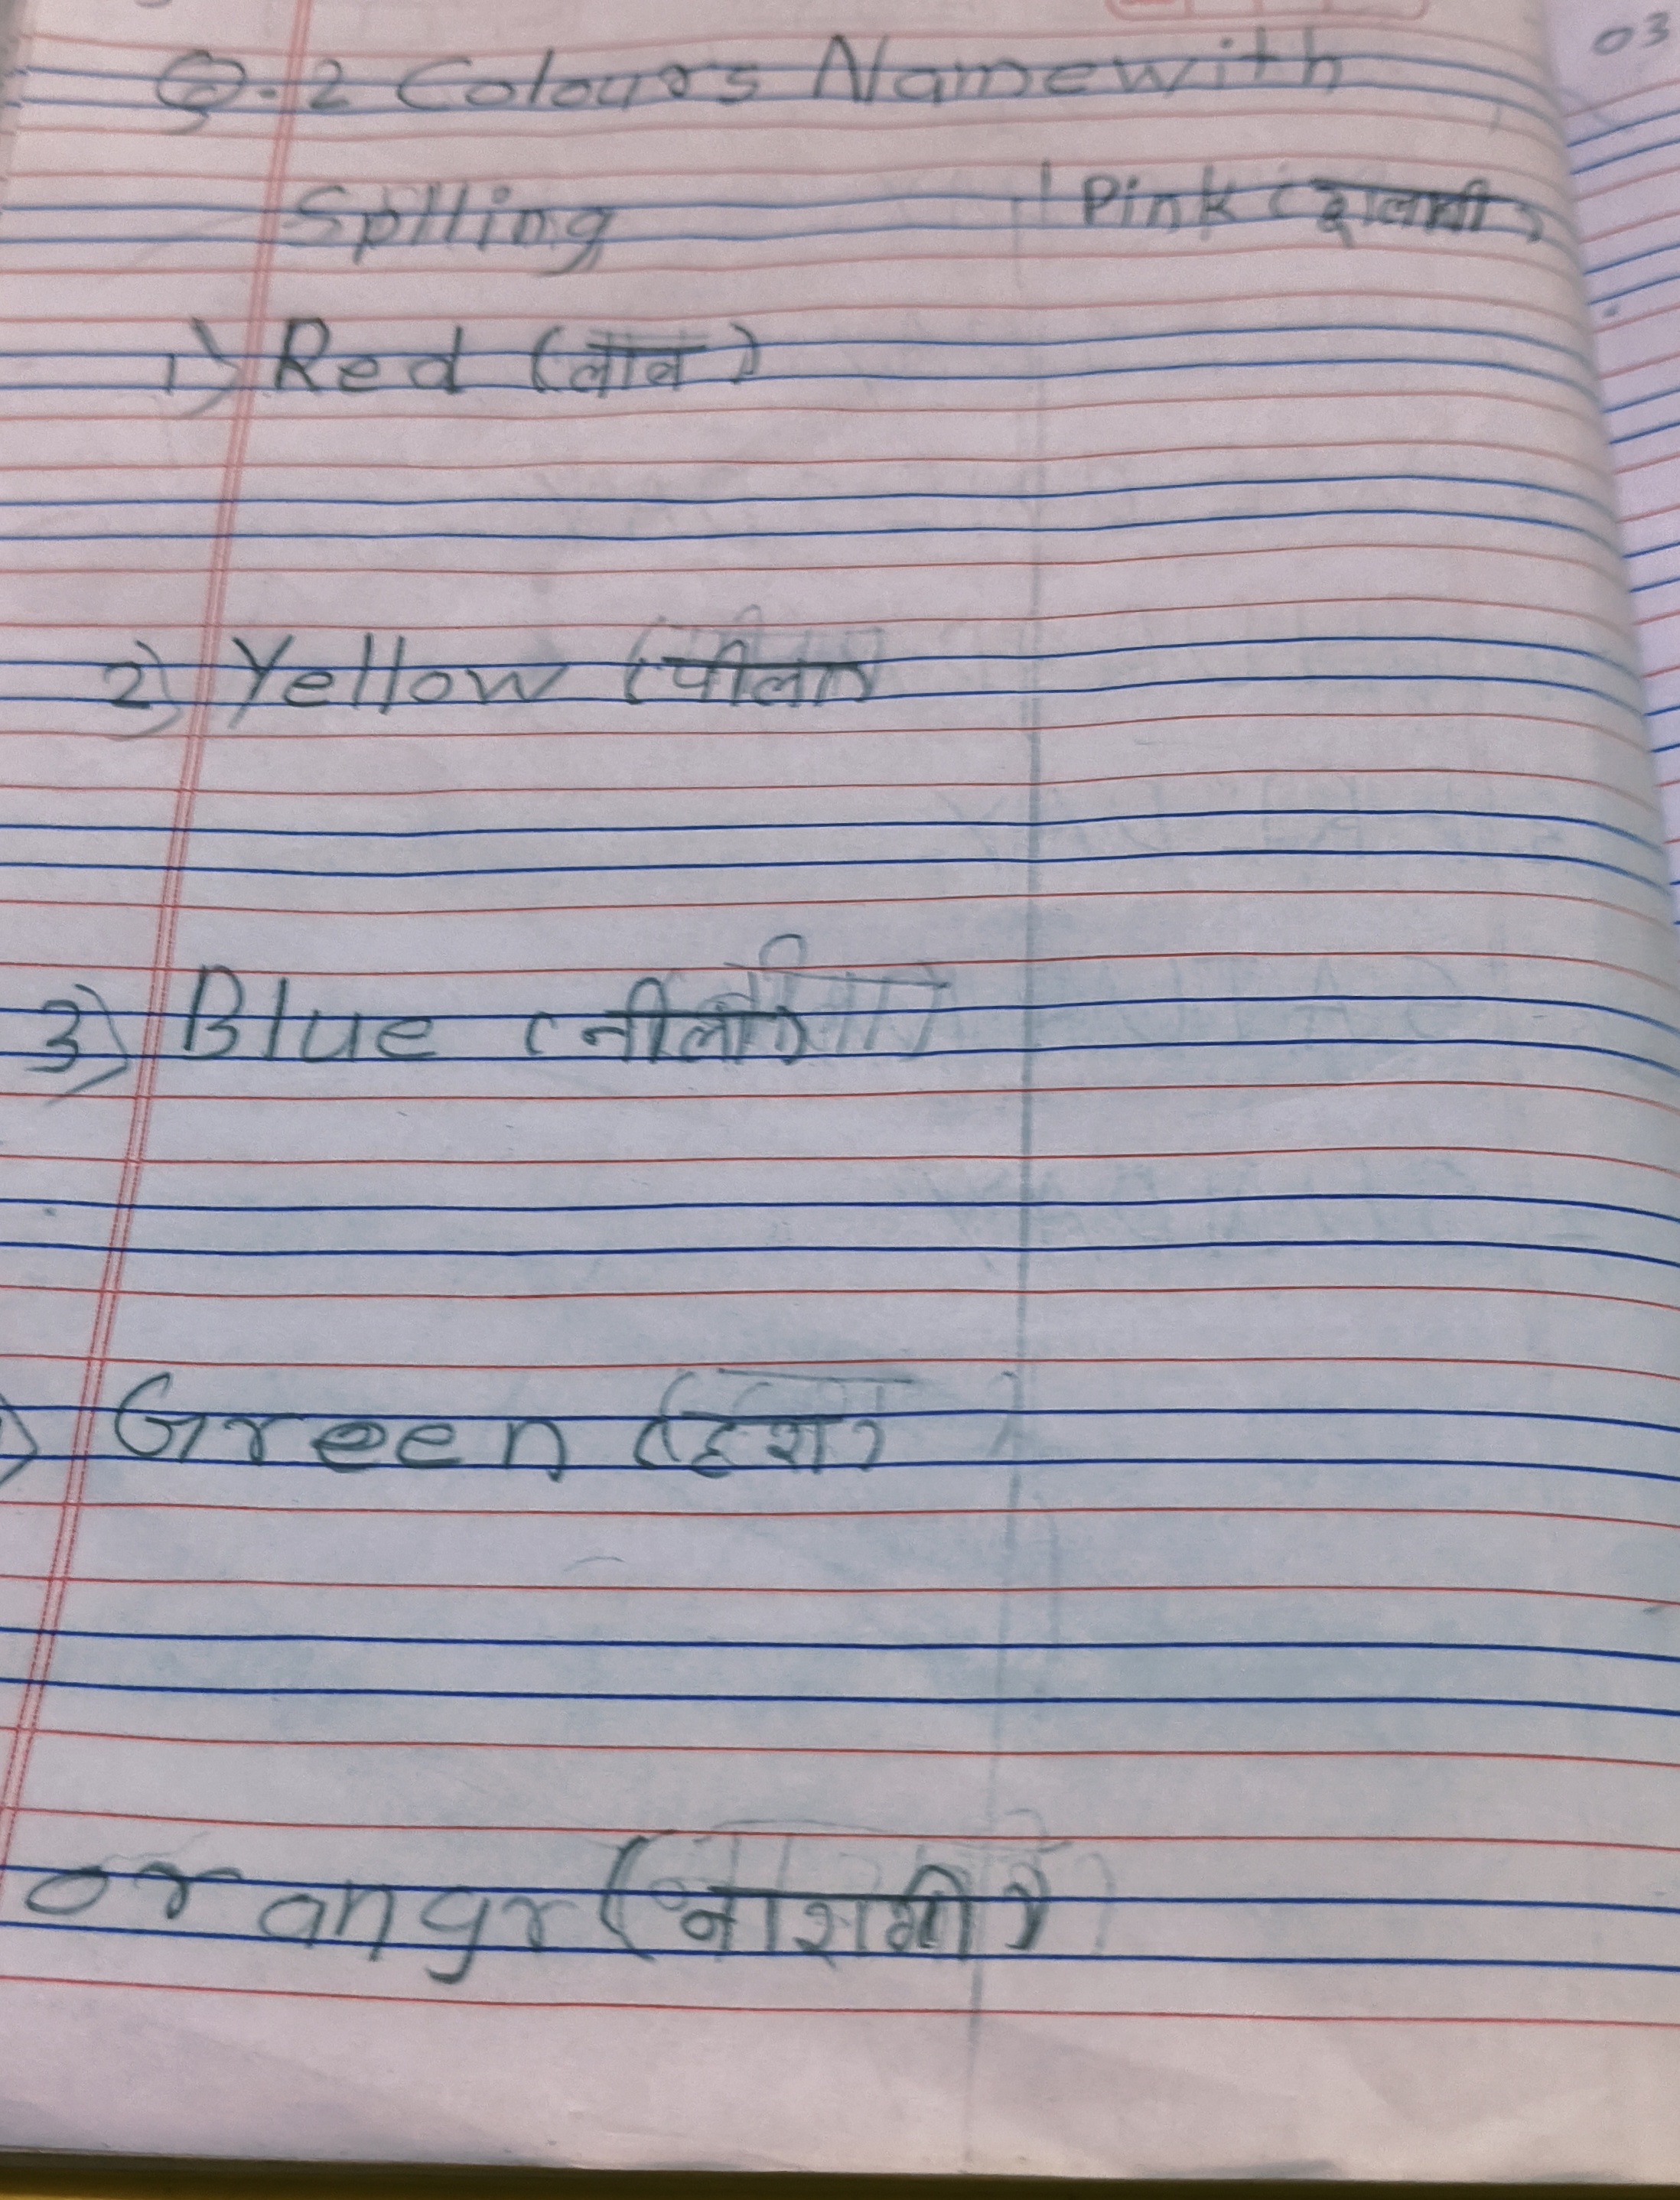 Q.2 Colours Name with
Splling
1) Red (लाल)
2) Yellow (पीला)
3) Blue (नीला)
) Green (हरा)
orangr (नारागी)
Pink
03